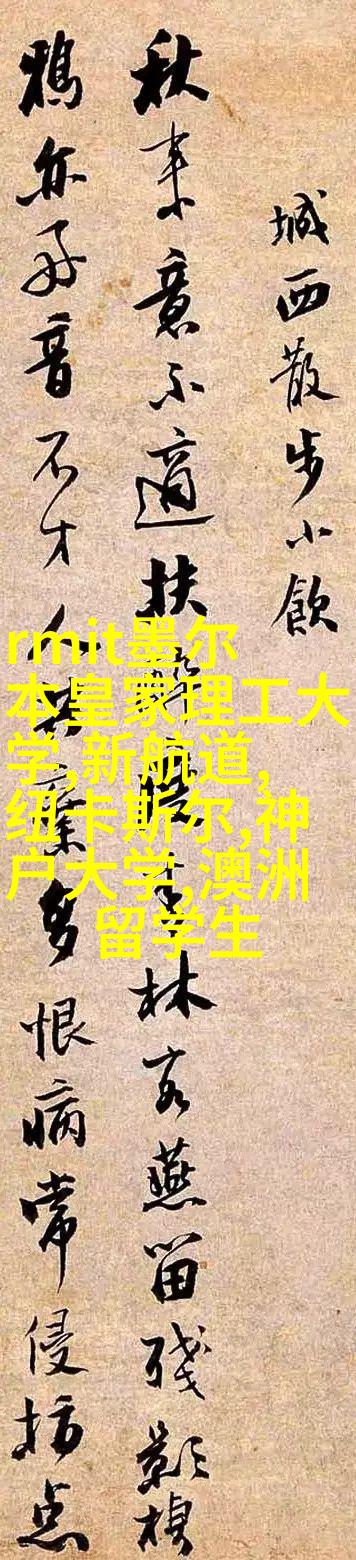 城西散步小飲
秋來意不適扶林客燕留殘影
鴉亦好音不才人共棄多恨病常侵
rmit墨尔
本皇家理工大
学,新航道,
纽卡斯尔,神
户大学,澳洲
留学生